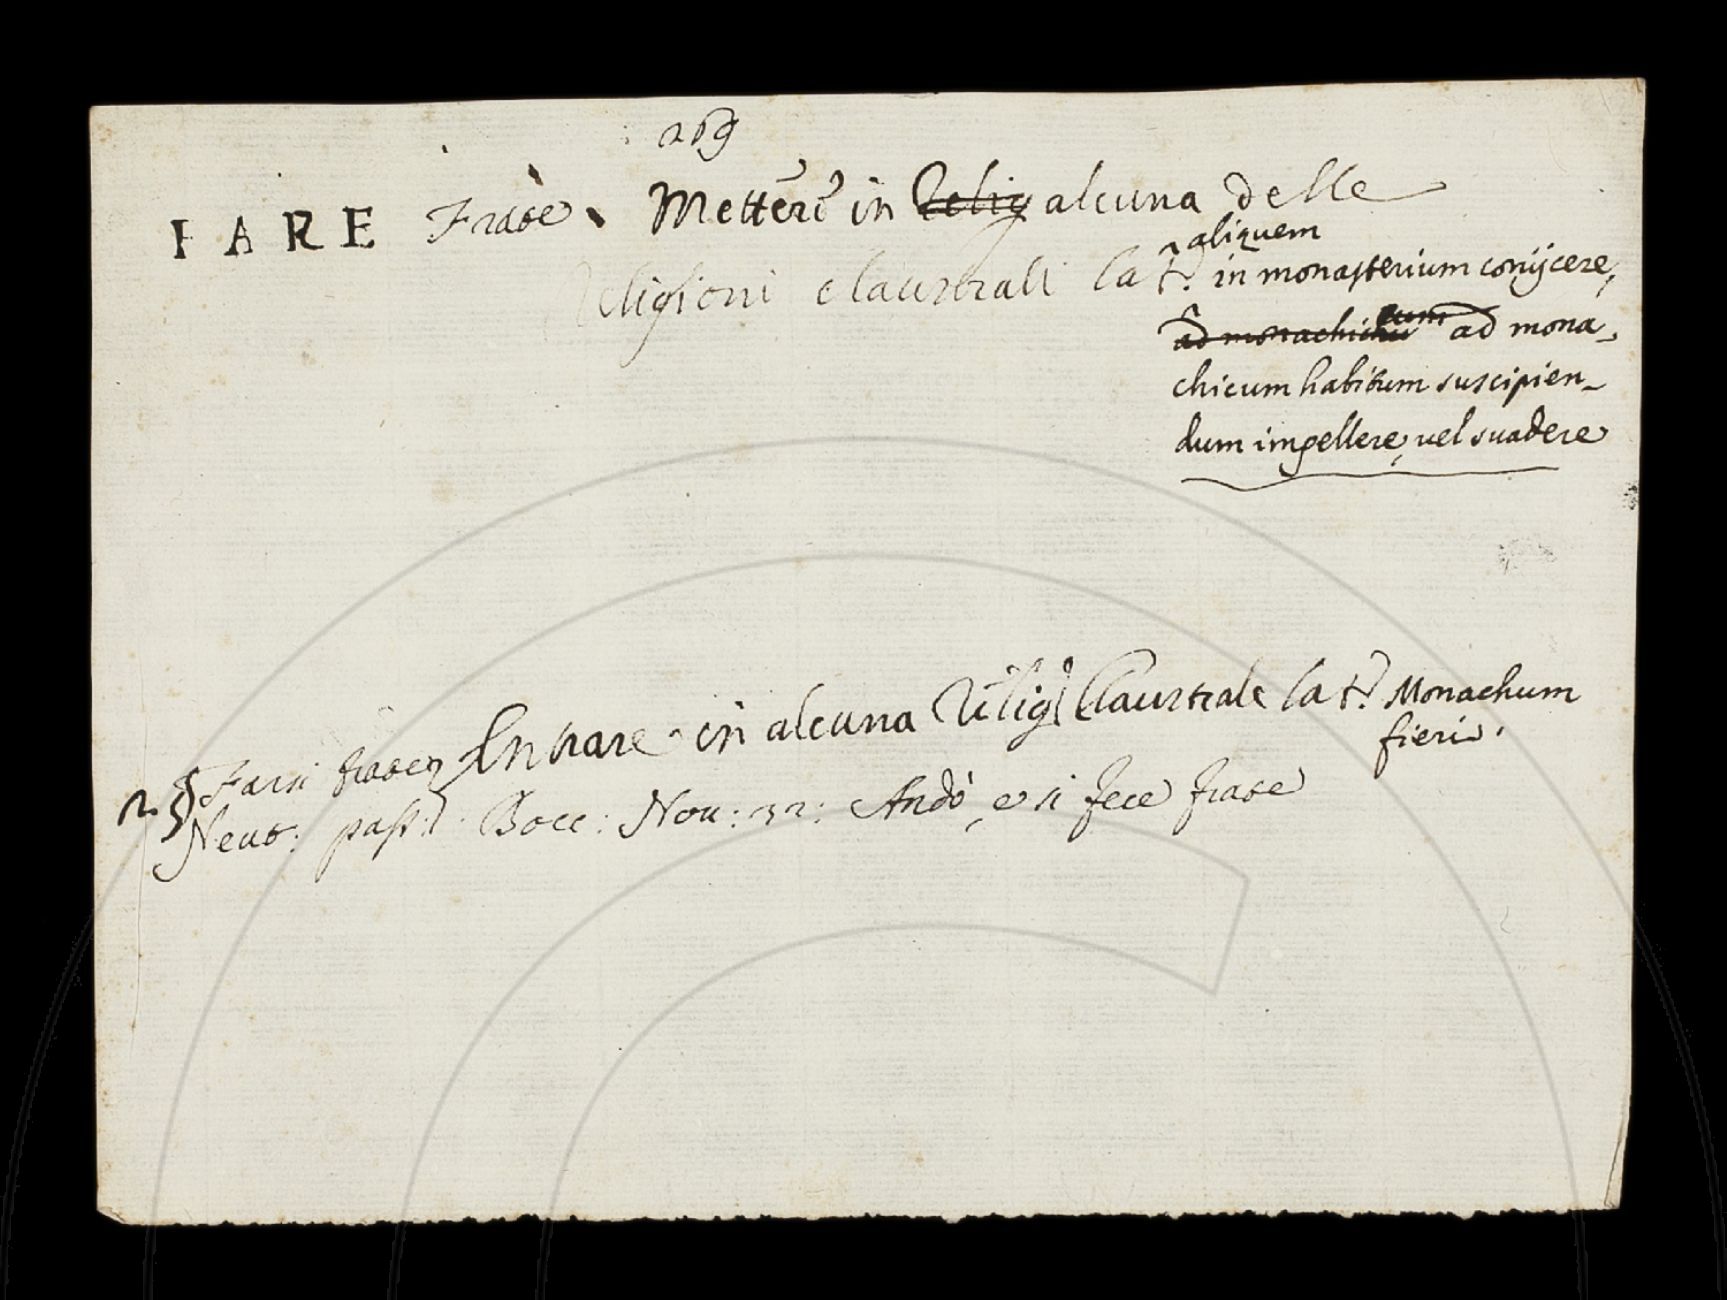 269
FARE Frate. Mettere in Relig alcuna delle
Religioni claustrali lat. aliquem in monasterium conijcere,
ad monachicu eum ad mona-
chicum habitum suscipien-
dum impellere, vel suadere
2. § Farsi frate, Entrare in alcuna Relig. Claustrale lat. Monachum
fieri.
Neut: pass: Bocc: Nov: 32: Andò, e si fece frate